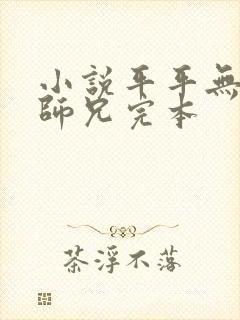 小説平平無
師兄完本
茶浮不落